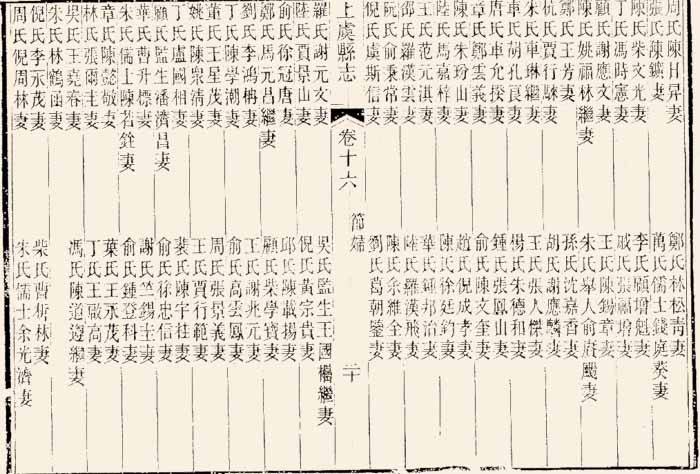 周氏陳日昇妻 鄭氏林松青妻
張氏陳鑛妻 萬氏儒士錢庭葵妻
陳氏柴文光妻 李氏顧增魁妻
丁氏馮時憲妻 戚氏張福增妻
顧氏謝應文妻 王氏陳錫章妻
陳氏姚福林繼妻 朱氏舉人俞廣颺妻
鄭氏王芳妻 孫氏沈嘉香妻
杭氏賈行騋妻 胡氏謝應麟妻
朱氏車琳繼妻 王氏張人傑妻
車氏胡孔良妻 楊氏朱德和妻
唐氏車允揆妻 鍾氏張鳳山妻
章氏鄭雲義妻 俞氏陳文奎妻
陳氏朱玢山妻 趙氏倪成孝妻
陸氏馬嘉梓妻 陳氏徐廷鈞妻
王氏范元淇妻 華氏鍾邦治妻
邵氏羅漢雲妻 陸氏羅漢飛妻
阮氏俞秉常妻 陳氏余維全妻
倪氏虞斯信妻 劉氏葛朝鋆妻
上虞縣志 卷十六 節婦 二十
羅氏謝元文妻 吳氏監生王國楹繼妻
陸氏賈景山妻 倪氏黃宗貴妻
俞氏徐冠唐妻 邱氏陳載揚妻
鄭氏馬元呂繼妻 顧氏柴學寶妻
劉氏李鴻楠妻 王氏謝兆元妻
丁氏陳學潮妻 俞氏高雲鳳妻
董氏王星茂妻 周氏張景義妻
姚氏陳宗清妻 王氏賈行範妻
丁氏盧國相妻 裴氏陳宇柱妻
顧氏監生潘濟昌妻 俞氏徐忠信妻
華氏曹升標妻 謝氏竺錫圭妻
朱氏儒士陳若銓妻 俞氏鍾登科妻
章氏陳懿敬妻 葉氏王承茂妻
林氏張爾圭妻 丁氏王殿高妻
吳氏王堯春妻 馮氏陳道遵繼妻
朱氏林鶴涵妻
倪氏李承茂妻 柴氏曹祈林妻
周氏倪周林妻 朱氏儒士余光濟妻